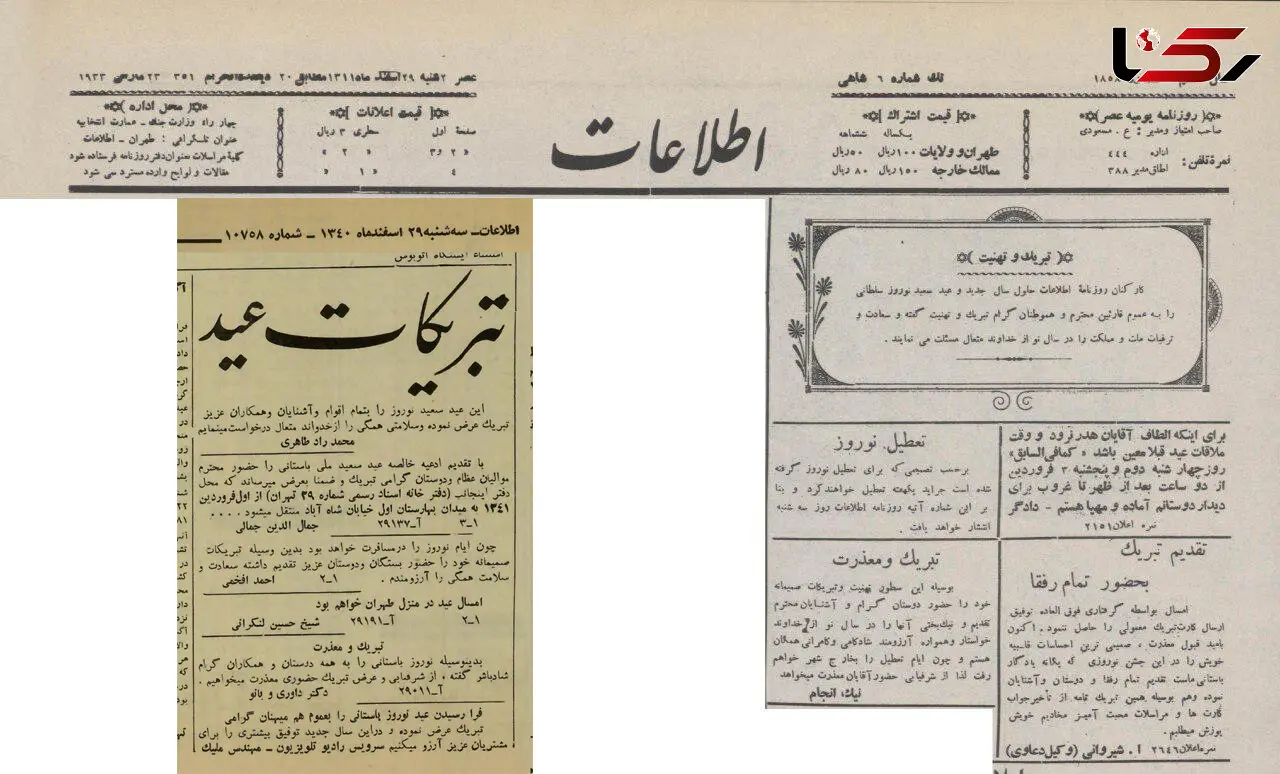 رکنا
عصر ۲شنبه ۲۹ اسفند ماه ۱۳۱۱ مطابق ۲۰ ذیقعدةالحرام ۳۵۱ ۲۳ مارس ۱۹۳۳
تك شماره ۶ شاهی
۱۸۵۸
روزنامه یومیه عصر
صاحب امتیاز ومدیر : ع . مسعودی
نمرۀ تلفن :
اداره ۴۴۴
اطاق مدیر ۳۸۸
قیمت اشتراك
یکساله ششماهه
طهران و ولایات ۱۰۰ ریال ۵۰ ریال
ممالك خارجه ۱۵۰ ریال ۸۰ ریال
اطلاعات
قیمت اعلانات
صفحۀ اول سطری ۳ ریال
« ۲ و ۳ « ۲ »
۴ « ۱ »
محل اداره
چهار راه وزارت جنگ ـ عمارت انتخابیه
عنوان تلگرافی : طهران ـ اطلاعات
کلیۀ مراسلات بعنوان دفتر روزنامه فرستاده شود
مقالات و لوایح وارده مسترد نمی شود
تبریك و تهنیت
کارکنان روزنامۀ اطلاعات حلول سال جدید و عید سعید نوروز سلطانی
را بـه عموم قارئین محترم و هموطنان گرام تبریك و تهنیت گفته و سعادت و
ترقیات ملت و مملکت را در سال نو از خداوند متعال مسئلت می نمایند .
برای اینکه الطاف آقایان هدر نرود و وقت
ملاقات عید قبلا معین باشد « کمافی‌السابق»
روز چهار شنبه دوم و پنجشنبه ۳ فروردین
از دو ساعت بعد از ظهر تا غروب برای
دیدار دوستانم آماده و مهیا هستم – دادگر
نمره اعلان ۲۱۵۱
تقدیم تبریك
بحضور تمام رفقا
امسال بواسطه گرفتاری فوق العاده توفیق
ارسال کارت تبریك معمولی را حاصل ننمود . اکنون
بامید قبول معذرت ، صمیمی ترین احساسات قلبیه
خویش را در این جشن نوروزی که یگانه یادگار
باستانی ماست تقدیم تمام رفقا و دوستان و آشنایان
نموده وهم بوسیله همین تبریك نامه از تأخیر جواب
کارت ها و مراسلات محبت آمیز مخادیم خویش
پوزش میطلبم .
نمره اعلان ۲۶۴۶ ا . شیروانی (وکیل دعاوی)
تعطیل نوروز
برحسب تصمیمی که برای تعطیل نوروز گرفته
شده است جراید یکهفته تعطیل خواهند کرد و بنا
بر این شماره آتیه روزنامه اطلاعات روز سه شنبه
انتشار خواهد یافت .
تبریك و معذرت
بوسیله این سطور تهنیت و تبریکات صمیمانه
خود را حضور دوستان گـرام و آشنایان محترم
تقدیم و نیك‌بختی آنها را در سال نو از خداوند
خواستار وهمواره آرزومند شادکامی وکامرانی همگان
هستم و چون ایام تعطیل را بخارج شهر خواهم
رفت لذا از شرفیابی حضور آقایان معذرت میخواهد
نیك انجام
اطلاعات ـ سه‌شنبه ۲۹ اسفندماه ۱۳۴۰ ـ شماره ۱۰۷۵۸
ایستگاه اتوبوس
تبریکات عید
این عید سعید نوروز را بتمام اقوام وآشنایان وهمکاران عزیز
تبریك عرض نموده وسلامتی همگی را ازخداوند متعال درخواست‌مینمایم
محمد راد طاهری
با تقدیم ادعیه خالصه عید سعید ملی باستانی را حضور محترم
موالیان عظام ودوستان گرامی تبریك و ضمنا بعرض میرساند که محل
دفتر اینجانب (دفتر خانه اسناد رسمی شماره ۳۹ تهران) از اول فروردین
۱۳۴۱ به میدان بهارستان اول خیابان شاه آباد منتقل میشود . . . .
۱ـ۳ آـ۲۹۱۳۷ جمال الدین جمالی
چون ایام نوروز را درمسافرت خواهد بود بدین وسیله تبریکات
صمیمانه خود را حضور بستگان ودوستان عزیز تقدیم داشته سعادت و
سلامت همگی را آرزومندم . ۱ـ۲ احمد افخمی
امسال عید در منزل طهران خواهم بود
۱ـ۲ آـ۲۹۱۹۱ شیخ حسین لنکرانی
تبریك و معذرت
بدینوسیله نوروز باستانی را به همه دوستان و همکاران گرام
شادباش گفته ، از شرفیابی و عرض تبریك حضوری معذرت میخواهیم .
آـ۲۹۰۱۱ دکتر داوری و بانو
فرا رسیدن عید نوروز باستانی را بعموم هم میهنان گرامی
تبریك عرض نموده و دراین سال جدید توفیق بیشتری را برای
مشتریان عزیز آرزو میکنیم سرویس رادیو تلویزیون ـ مهندس ملیك